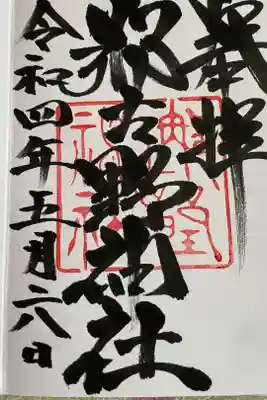 奉拝
那古野神社
令和四年五月六日